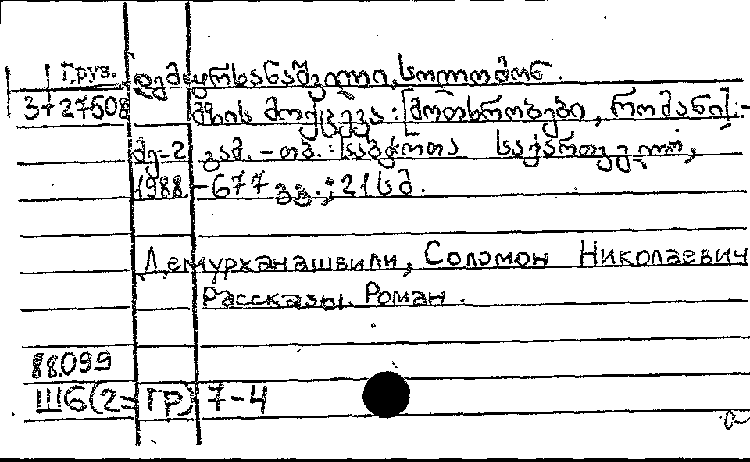 Груз. დემურხანაშვილი, სოლომონ.
3+27508 მზის მოქცევა: [მოთხრობები, რომანი].-
მე-2 გამ. - თბ.: საბჭოთა საქართველო,
1988 - 677 გვ.; 21 სმ.
Демурханашвили, Соломон Николаевич
Рассказы. Роман.
88.099
Ш6(2=ГР)7-4